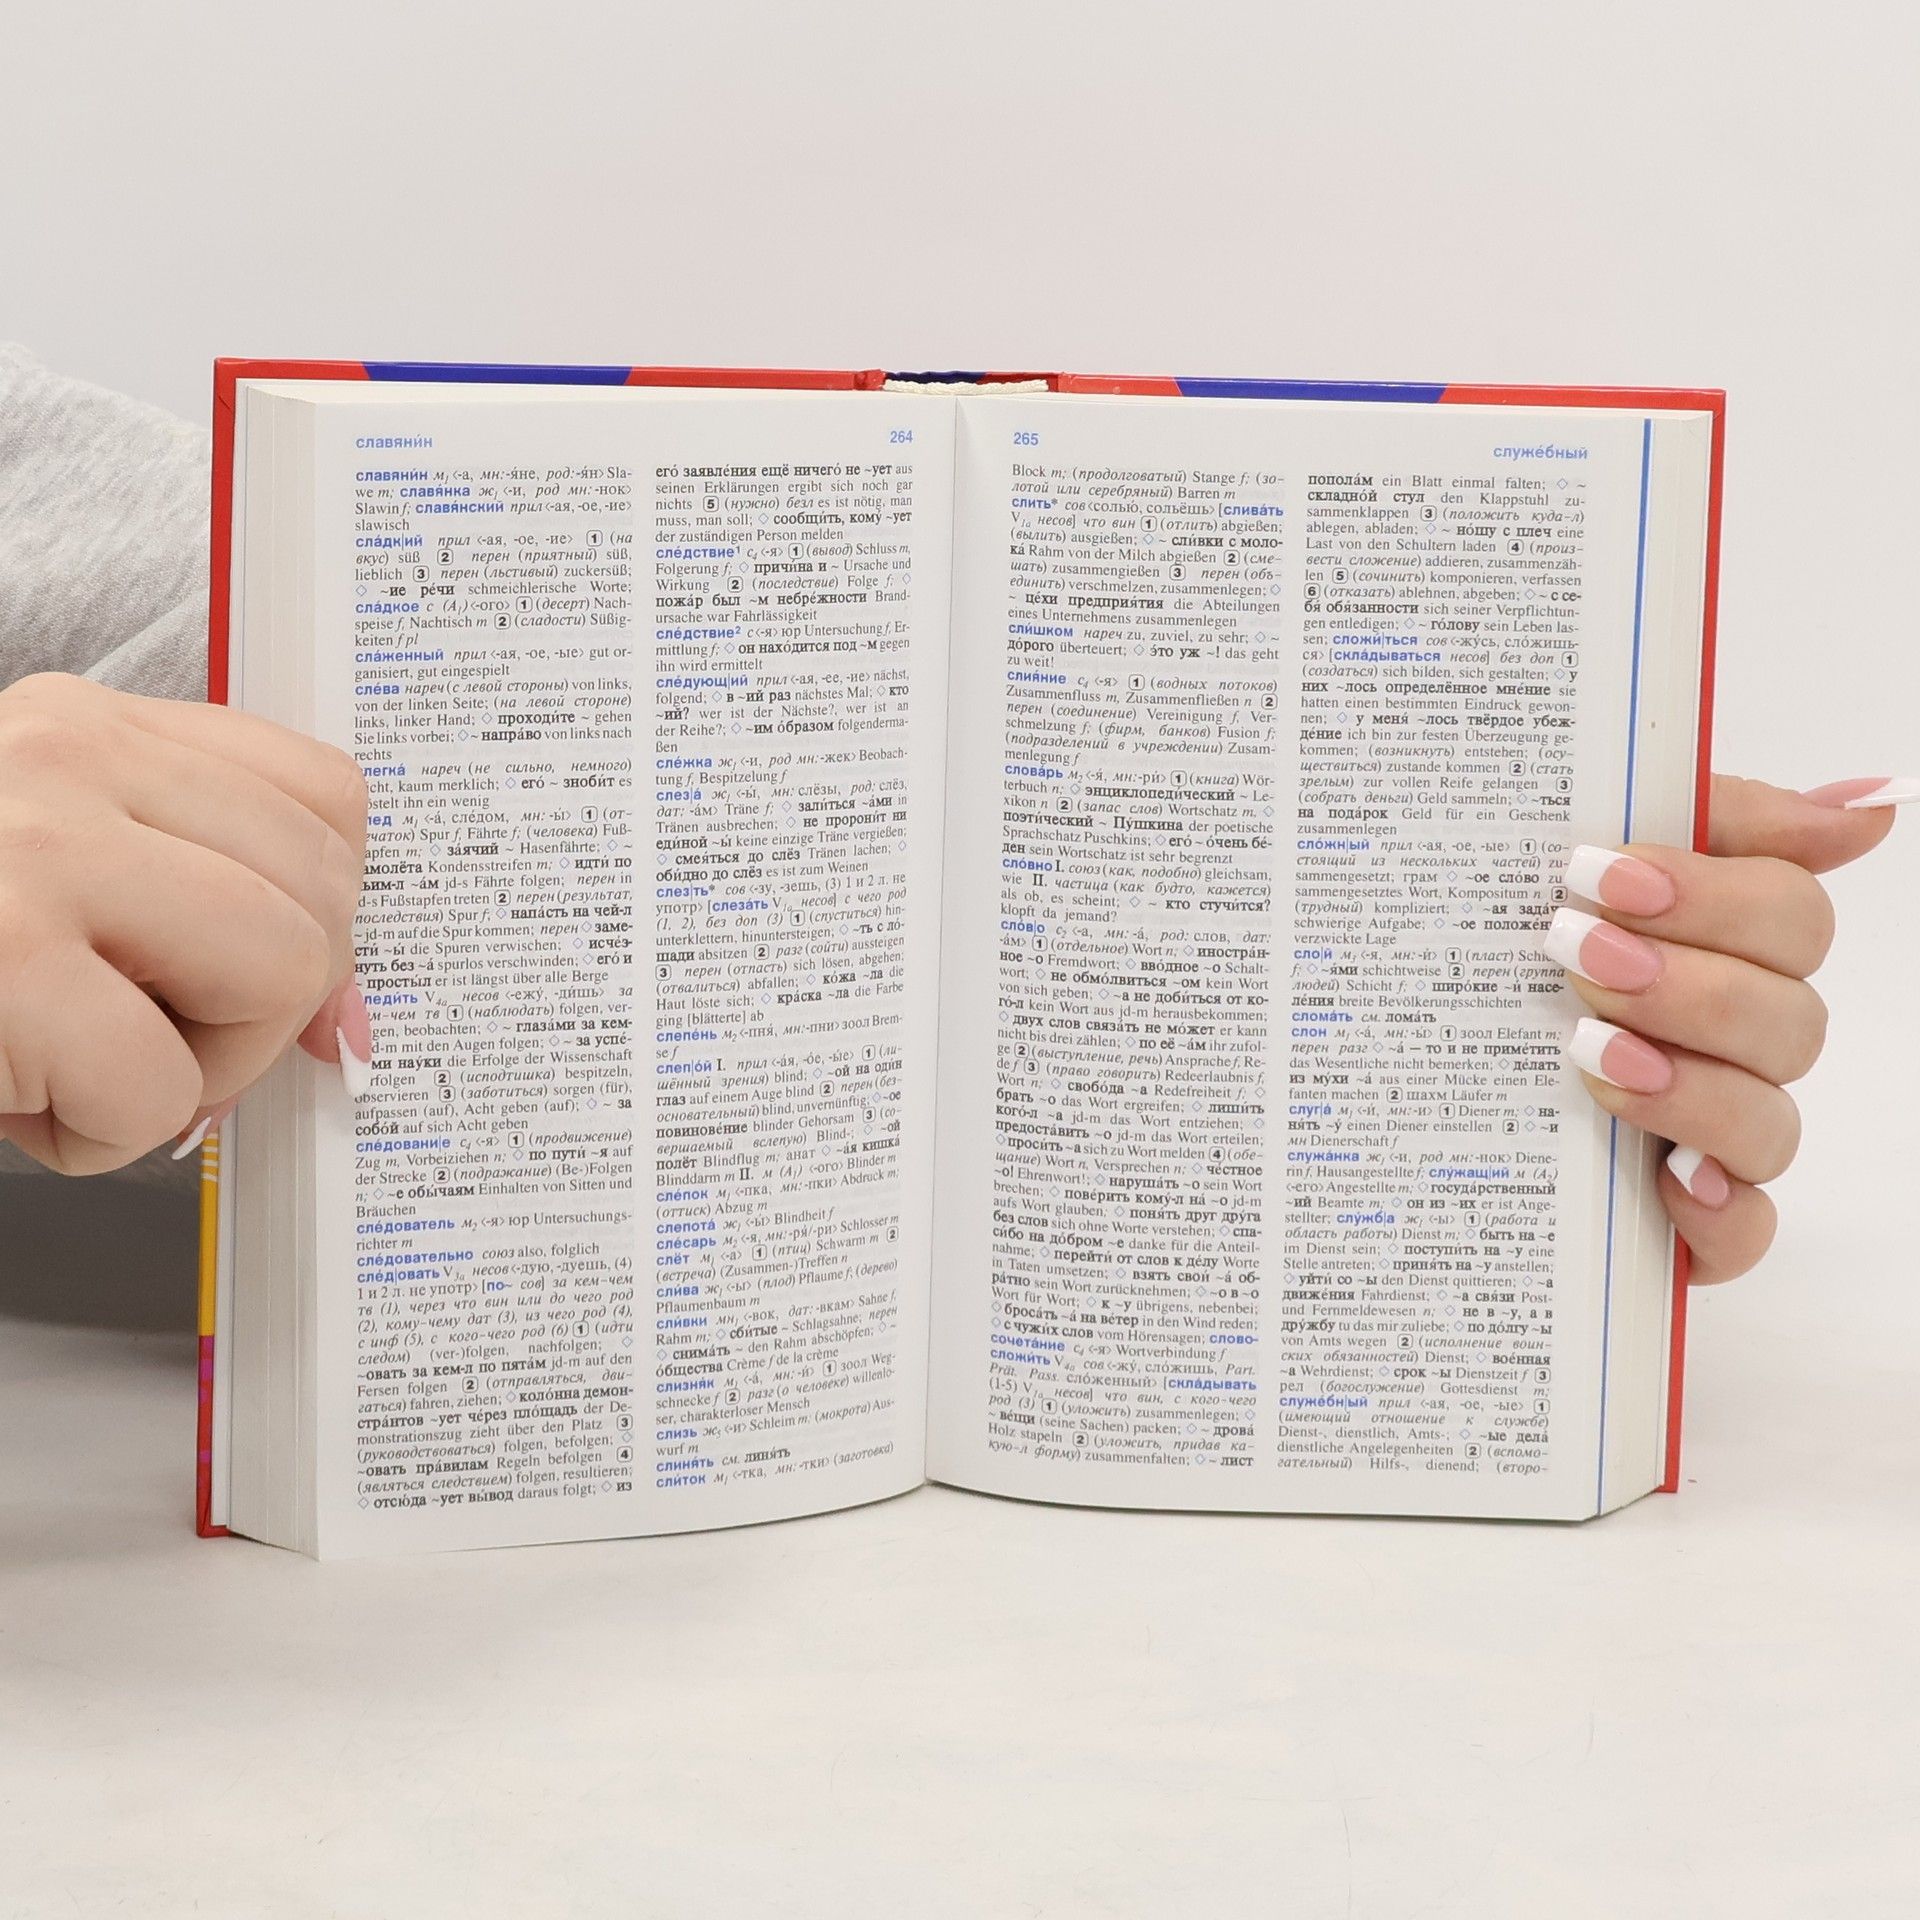 славяни́н
264
славяни́н м₁ ‹-а, мн:-я́не, род:-я́н› Sla-
we m; славя́нка ж₁ ‹-и, род мн:-нок›
Slawin f; славя́нский прил ‹-ая, -ое, -ие›
slawisch
сла́дк|ий прил ‹-ая, -ое, -ие› 1 (на
вкус) süß 2 перен (приятный) süß,
lieblich 3 перен (льстивый) zuckersüß;
◇ ~ие ре́чи schmeichlerische Worte;
сла́дкое с (A₁) ‹-ого› 1 (десерт) Nach-
speise f, Nachtisch m 2 (сладости) Süßig-
keiten f pl
сла́женный прил ‹-ая, -ое, -ые› gut or-
ganisiert, gut eingespielt
сле́ва нареч (с левой стороны) von links,
von der linken Seite; (на левой стороне)
links, linker Hand; ◇ проходи́те ~ gehen
Sie links vorbei; ◇ ~ напра́во von links nach
rechts
легка́ нареч (не сильно, немного)
icht, kaum merklich; ◇ его́ ~ зноби́т es
östelt ihn ein wenig
лед м₁ ‹-а́, сле́дом, мн: -ы́› 1 (от-
ечаток) Spur f, Fährte f; (человека) Fuß-
apfen m; ◇ за́ячий ~ Hasenfährte; ◇ ~
амолёта Kondensstreifen m; ◇ идти́ по
ьим-л ~а́м jd-s Fährte folgen; перен in
d-s Fußstapfen treten 2 перен (результат,
последствия) Spur f; ◇ напа́сть на чей-л
~ jd-m auf die Spur kommen; перен ◇ заме-
сти́ ~ы́ die Spuren verwischen; ◇ исче́з-
нуть без ~а́ spurlos verschwinden; ◇ его́ и
~ просты́л er ist längst über alle Berge
леди́ть V₄ₐ несов ‹-ежу́, -ди́шь› за
ем-чем тв 1 (наблюдать) folgen, ver-
gen, beobachten; ◇ ~ глаза́ми за кем-
d-m mit den Augen folgen; ◇ ~ за успе́-
ми нау́ки die Erfolge der Wissenschaft
rfolgen 2 (исподтишка) bespitzeln,
observieren 3 (заботиться) sorgen (für),
aufpassen (auf), Acht geben (auf); ◇ ~ за
собо́й auf sich Acht geben
сле́довани|е с₄ ‹-я› 1 (продвижение)
Zug m, Vorbeiziehen n; ◇ по пути́ ~я auf
der Strecke 2 (подражание) (Be-)Folgen
n; ◇ ~е обы́чаям Einhalten von Sitten und
Bräuchen
сле́дователь м₂ ‹-я› юр Untersuchungs-
richter m
сле́довательно союз also, folglich
сле́д|овать V₃ₐ несов ‹-дую, -дуешь, (4)
1 и 2 л. не употр› [по~ сов] за кем-чем
тв (1), через что вин или до чего род
(2), кому-чему дат (3), из чего род (4),
с инф (5), с кого-чего род (6) 1 (идти
следом) (ver-)folgen, nachfolgen; ◇
~овать за кем-л по пята́м jd-m auf den
Fersen folgen 2 (отправляться, дви-
гаться) fahren, ziehen; ◇ коло́нна демон-
стра́нтов ~ует че́рез пло́щадь der De-
monstrationszug zieht über den Platz 3
(руководствоваться) folgen, befolgen; ◇
~овать пра́вилам Regeln befolgen 4
(являться следствием) folgen, resultieren;
◇ отсю́да ~ует вы́вод daraus folgt; ◇ из
его́ заявле́ния ещё ничего́ не ~ует aus
seinen Erklärungen ergibt sich noch gar
nichts 5 (нужно) безл es ist nötig, man
muss, man soll; ◇ сообщи́ть, кому́ ~ует
der zuständigen Person melden
сле́дствие¹ с₄ ‹-я› 1 (вывод) Schluss m,
Folgerung f; ◇ причи́на и ~ Ursache und
Wirkung 2 (последствие) Folge f; ◇
пожа́р был ~м небре́жности Brand-
ursache war Fahrlässigkeit
сле́дствие² с ‹-я› юр Untersuchung f, Er-
mittlung f; ◇ он нахо́дится под ~м gegen
ihn wird ermittelt
сле́дующ|ий прил ‹-ая, -ее, -ие› nächst,
folgend; ◇ в ~ий раз nächstes Mal; ◇ кто
~ий? wer ist der Nächste?, wer ist an
der Reihe?; ◇ ~им о́бразом folgenderma-
ßen
сле́жка ж₁ ‹-и, род мн:-жек› Beobach-
tung f, Bespitzelung f
слез|а́ ж₁ ‹-ы́, мн: слёзы, род: слёз,
дат: -а́м› Träne f; ◇ зали́ться ~а́ми in
Tränen ausbrechen; ◇ не пророни́т ни
еди́ной ~ы́ keine einzige Träne vergießen;
◇ смея́ться до слёз Tränen lachen; ◇
оби́дно до слёз es ist zum Weinen
слез|ть* сов ‹-зу, -зешь, (3) 1 и 2 л. не
употр› [слеза́ть V₁ₐ несов] с чего род
(1, 2), без доп (3) 1 (спуститься) hin-
unterklettern, hinuntersteigen; ◇ ~ть с ло́-
шади absitzen 2 разг (сойти) aussteigen
3 перен (отпасть) sich lösen, abgehen;
(отвалиться) abfallen; ◇ ко́жа ~ла die
Haut löste sich; ◇ кра́ска ~ла die Farbe
ging [blätterte] ab
слепе́нь м₂ ‹-пня́, мн:-пни́› зоол Brem-
se f
слеп|о́й I. прил ‹-а́я, -о́е, -ы́е› 1 (ли-
шённый зрения) blind; ◇ ~о́й на оди́н
глаз auf einem Auge blind 2 перен (без-
основательный) blind, unvernünftig; ◇ ~о́е
повинове́ние blinder Gehorsam 3 (со-
вершаемый вслепую) Blind-; ◇ ~о́й
полёт Blindflug m; анат ◇ ~а́я кишка́
Blinddarm m II. м (A₁) ‹-о́го› Blinder m
сле́пок м₁ ‹-пка, мн: -пки› Abdruck m;
(оттиск) Abzug m
слепота́ ж₁ ‹-ы́› Blindheit f
сле́сарь м₂ ‹-я, мн:-ря́/-ри› Schlosser m
слёт м₁ ‹-а› 1 (птиц) Schwarm m 2
(встреча) (Zusammen-)Treffen n
сли́ва ж₁ ‹-ы› (плод) Pflaume f; (дерево)
Pflaumenbaum m
сли́вки мн₁ ‹-вок, дат: -вкам› Sahne f,
Rahm m; ◇ сби́тые ~ Schlagsahne; перен
◇ снима́ть ~ den Rahm abschöpfen; ◇ ~
о́бщества Crème f de la crème
слизня́к м₁ ‹-а́, мн: -и́› 1 зоол Weg-
schnecke f 2 разг (о человеке) willenlo-
ser, charakterloser Mensch
слизь ж₅ ‹-и› Schleim m; (мокрота) Aus-
wurf m
слиня́ть см. линя́ть
сли́ток м₁ ‹-тка, мн: -тки› (заготовка)
265
служе́бный
Block m; (продолговатый) Stange f; (зо-
лотой или серебряный) Barren m
слить* сов ‹солью́, сольёшь› [слива́ть
V₁ₐ несов] что вин 1 (отлить) abgießen;
(вылить) ausgießen; ◇ ~ сли́вки с моло-
ка́ Rahm von der Milch abgießen 2 (сме-
шать) zusammengießen 3 перен (объ-
единить) verschmelzen, zusammenlegen; ◇
~ це́хи предприя́тия die Abteilungen
eines Unternehmens zusammenlegen
сли́шком нареч zu, zuviel, zu sehr; ◇ ~
до́рого überteuert; ◇ э́то уж ~! das geht
zu weit!
слия́ние с₄ ‹-я› 1 (водных потоков)
Zusammenfluss m, Zusammenfließen n 2
перен (соединение) Vereinigung f, Ver-
schmelzung f; (фирм, банков) Fusion f;
(подразделений в учреждении) Zusam-
menlegung f
слова́рь м₂ ‹-я́, мн:-ри́› 1 (книга) Wör-
terbuch n; ◇ энциклопеди́ческий ~ Le-
xikon n 2 (запас слов) Wortschatz m, ◇
поэти́ческий ~ Пу́шкина der poetische
Sprachschatz Puschkins; ◇ его́ ~ о́чень бе́-
ден sein Wortschatz ist sehr begrenzt
сло́вно I. союз (как, подобно) gleichsam,
wie II. частица (как будто, кажется)
als ob, es scheint; ◇ ~ кто стучи́тся?
klopft da jemand?
сло́в|о с₂ ‹-а, мн: -а́, род: слов, дат:
-а́м› 1 (отдельное) Wort n; ◇ иностра́н-
ное ~о Fremdwort; ◇ вво́дное ~о Schalt-
wort; ◇ не обмо́лвиться ~ом kein Wort
von sich geben; ◇ ~а не доби́ться от ко-
го́-л kein Wort aus jd-m herausbekommen;
◇ двух слов связа́ть не мо́жет er kann
nicht bis drei zählen; ◇ по её ~а́м ihr zufol-
ge 2 (выступление, речь) Ansprache f, Re-
de f 3 (право говорить) Redeerlaubnis f,
Wort n; ◇ свобо́да ~а Redefreiheit f; ◇
брать ~о das Wort ergreifen; ◇ лиши́ть
кого́-л ~а jd-m das Wort entziehen; ◇
предоста́вить ~о jd-m das Wort erteilen;
◇ проси́ть ~а sich zu Wort melden 4 (обе-
щание) Wort n, Versprechen n; ◇ че́стное
~о! Ehrenwort!; ◇ наруша́ть ~о sein Wort
brechen; ◇ пове́рить кому́-л на́ ~о jd-m
aufs Wort glauben; ◇ поня́ть друг дру́га
без слов sich ohne Worte verstehen; ◇ спа-
си́бо на до́бром ~е danke für die Anteil-
nahme; ◇ перейти́ от слов к де́лу Worte
in Taten umsetzen; ◇ взять свои́ ~а́ об-
ра́тно sein Wort zurücknehmen; ◇ ~о в ~о
Wort für Wort; ◇ к ~у übrigens, nebenbei;
◇ броса́ть ~а́ на ве́тер in den Wind reden;
◇ с чужи́х слов vom Hörensagen; слово-
сочета́ние с₄ ‹-я› Wortverbindung f
сложи́ть V₄ₐ сов ‹-жу́, сло́жишь, Part.
Prät. Pass. сло́женный› [скла́дывать
(1-5) V₁ₐ несов] что вин, с кого-чего
род (3) 1 (уложить) zusammenlegen; ◇
~ ве́щи (seine Sachen) packen; ◇ ~ дрова́
Holz stapeln 2 (уложить, придав ка-
кую-л форму) zusammenfalten; ◇ ~ лист
попола́м ein Blatt einmal falten; ◇ ~
складно́й стул den Klappstuhl zu-
sammenklappen 3 (положить куда-л)
ablegen, abladen; ◇ ~ но́шу с плеч eine
Last von den Schultern laden 4 (произ-
вести сложение) addieren, zusammenzäh-
len 5 (сочинить) komponieren, verfassen
6 (отказать) ablehnen, abgeben; ◇ ~ с се-
бя́ обя́занности sich seiner Verpflichtun-
gen entledigen; ◇ ~ го́лову sein Leben las-
sen; сложи́|ться сов ‹-жу́сь, сло́жишь-
ся› [скла́дываться несов] без доп 1
(создаться) sich bilden, sich gestalten; ◇ у
них ~лось определённое мне́ние sie
hatten einen bestimmten Eindruck gewon-
nen; ◇ у меня́ ~лось твёрдое убеж-
де́ние ich bin zur festen Überzeugung ge-
kommen; (возникнуть) entstehen; (осу-
ществиться) zustande kommen 2 (стать
зрелым) zur vollen Reife gelangen 3
(собрать деньги) Geld sammeln; ◇ ~ться
на пода́рок Geld für ein Geschenk
zusammenlegen
сло́жн|ый прил ‹-ая, -ое, -ые› 1 (со-
стоящий из нескольких частей) zu-
sammengesetzt; грам ◇ ~ое сло́во zu
sammengesetztes Wort, Kompositum n 2
(трудный) kompliziert; ◇ ~ая зада́ч
schwierige Aufgabe; ◇ ~ое положе́н
verzwickte Lage
сло|й м₁ ‹-я, мн: -и́› 1 (пласт) Schic
f; ◇ ~я́ми schichtweise 2 перен (группа
людей) Schicht f; ◇ широ́кие ~и́ насе-
ле́ния breite Bevölkerungsschichten
слома́ть см. лома́ть
слон м₁ ‹-а́, мн: -ы́› 1 зоол Elefant m;
перен разг ◇ ~а́ — то и не приме́тить
das Wesentliche nicht bemerken; ◇ де́лать
из му́хи ~а́ aus einer Mücke einen Ele-
fanten machen 2 шахм Läufer m
слуг|а́ м₁ ‹-и́, мн:-и› 1 Diener m; ◇ на-
ня́ть ~у́ einen Diener einstellen 2 ◇ ~и
мн Dienerschaft f
служа́нка ж₁ ‹-и, род мн: -нок› Diene-
rin f, Hausangestellte f; слу́жащ|ий м (A₂)
‹-его› Angestellte m; ◇ госуда́рственный
~ий Beamte m; ◇ он из ~их er ist Ange-
stellter; слу́жб|а ж₁ ‹-ы› 1 (работа и
область работы) Dienst m; ◇ быть на ~е
im Dienst sein; ◇ поступи́ть на ~у eine
Stelle antreten; ◇ приня́ть на ~у anstellen;
◇ уйти́ со ~ы den Dienst quittieren; ◇ ~а
движе́ния Fahrdienst; ◇ ~а свя́зи Post-
und Fernmeldewesen n; ◇ не в ~у, а в
дру́жбу tu das mir zuliebe; ◇ по до́лгу ~ы
von Amts wegen 2 (исполнение воин-
ских обязанностей) Dienst; ◇ вое́нная
~а Wehrdienst; ◇ срок ~ы Dienstzeit f 3
рел (богослужение) Gottesdienst m;
служе́бн|ый прил ‹-ая, -ое, -ые› 1
(имеющий отношение к службе)
Dienst-, dienstlich, Amts-; ◇ ~ые дела́
dienstliche Angelegenheiten 2 (вспомо-
гательный) Hilfs-, dienend; (второ-